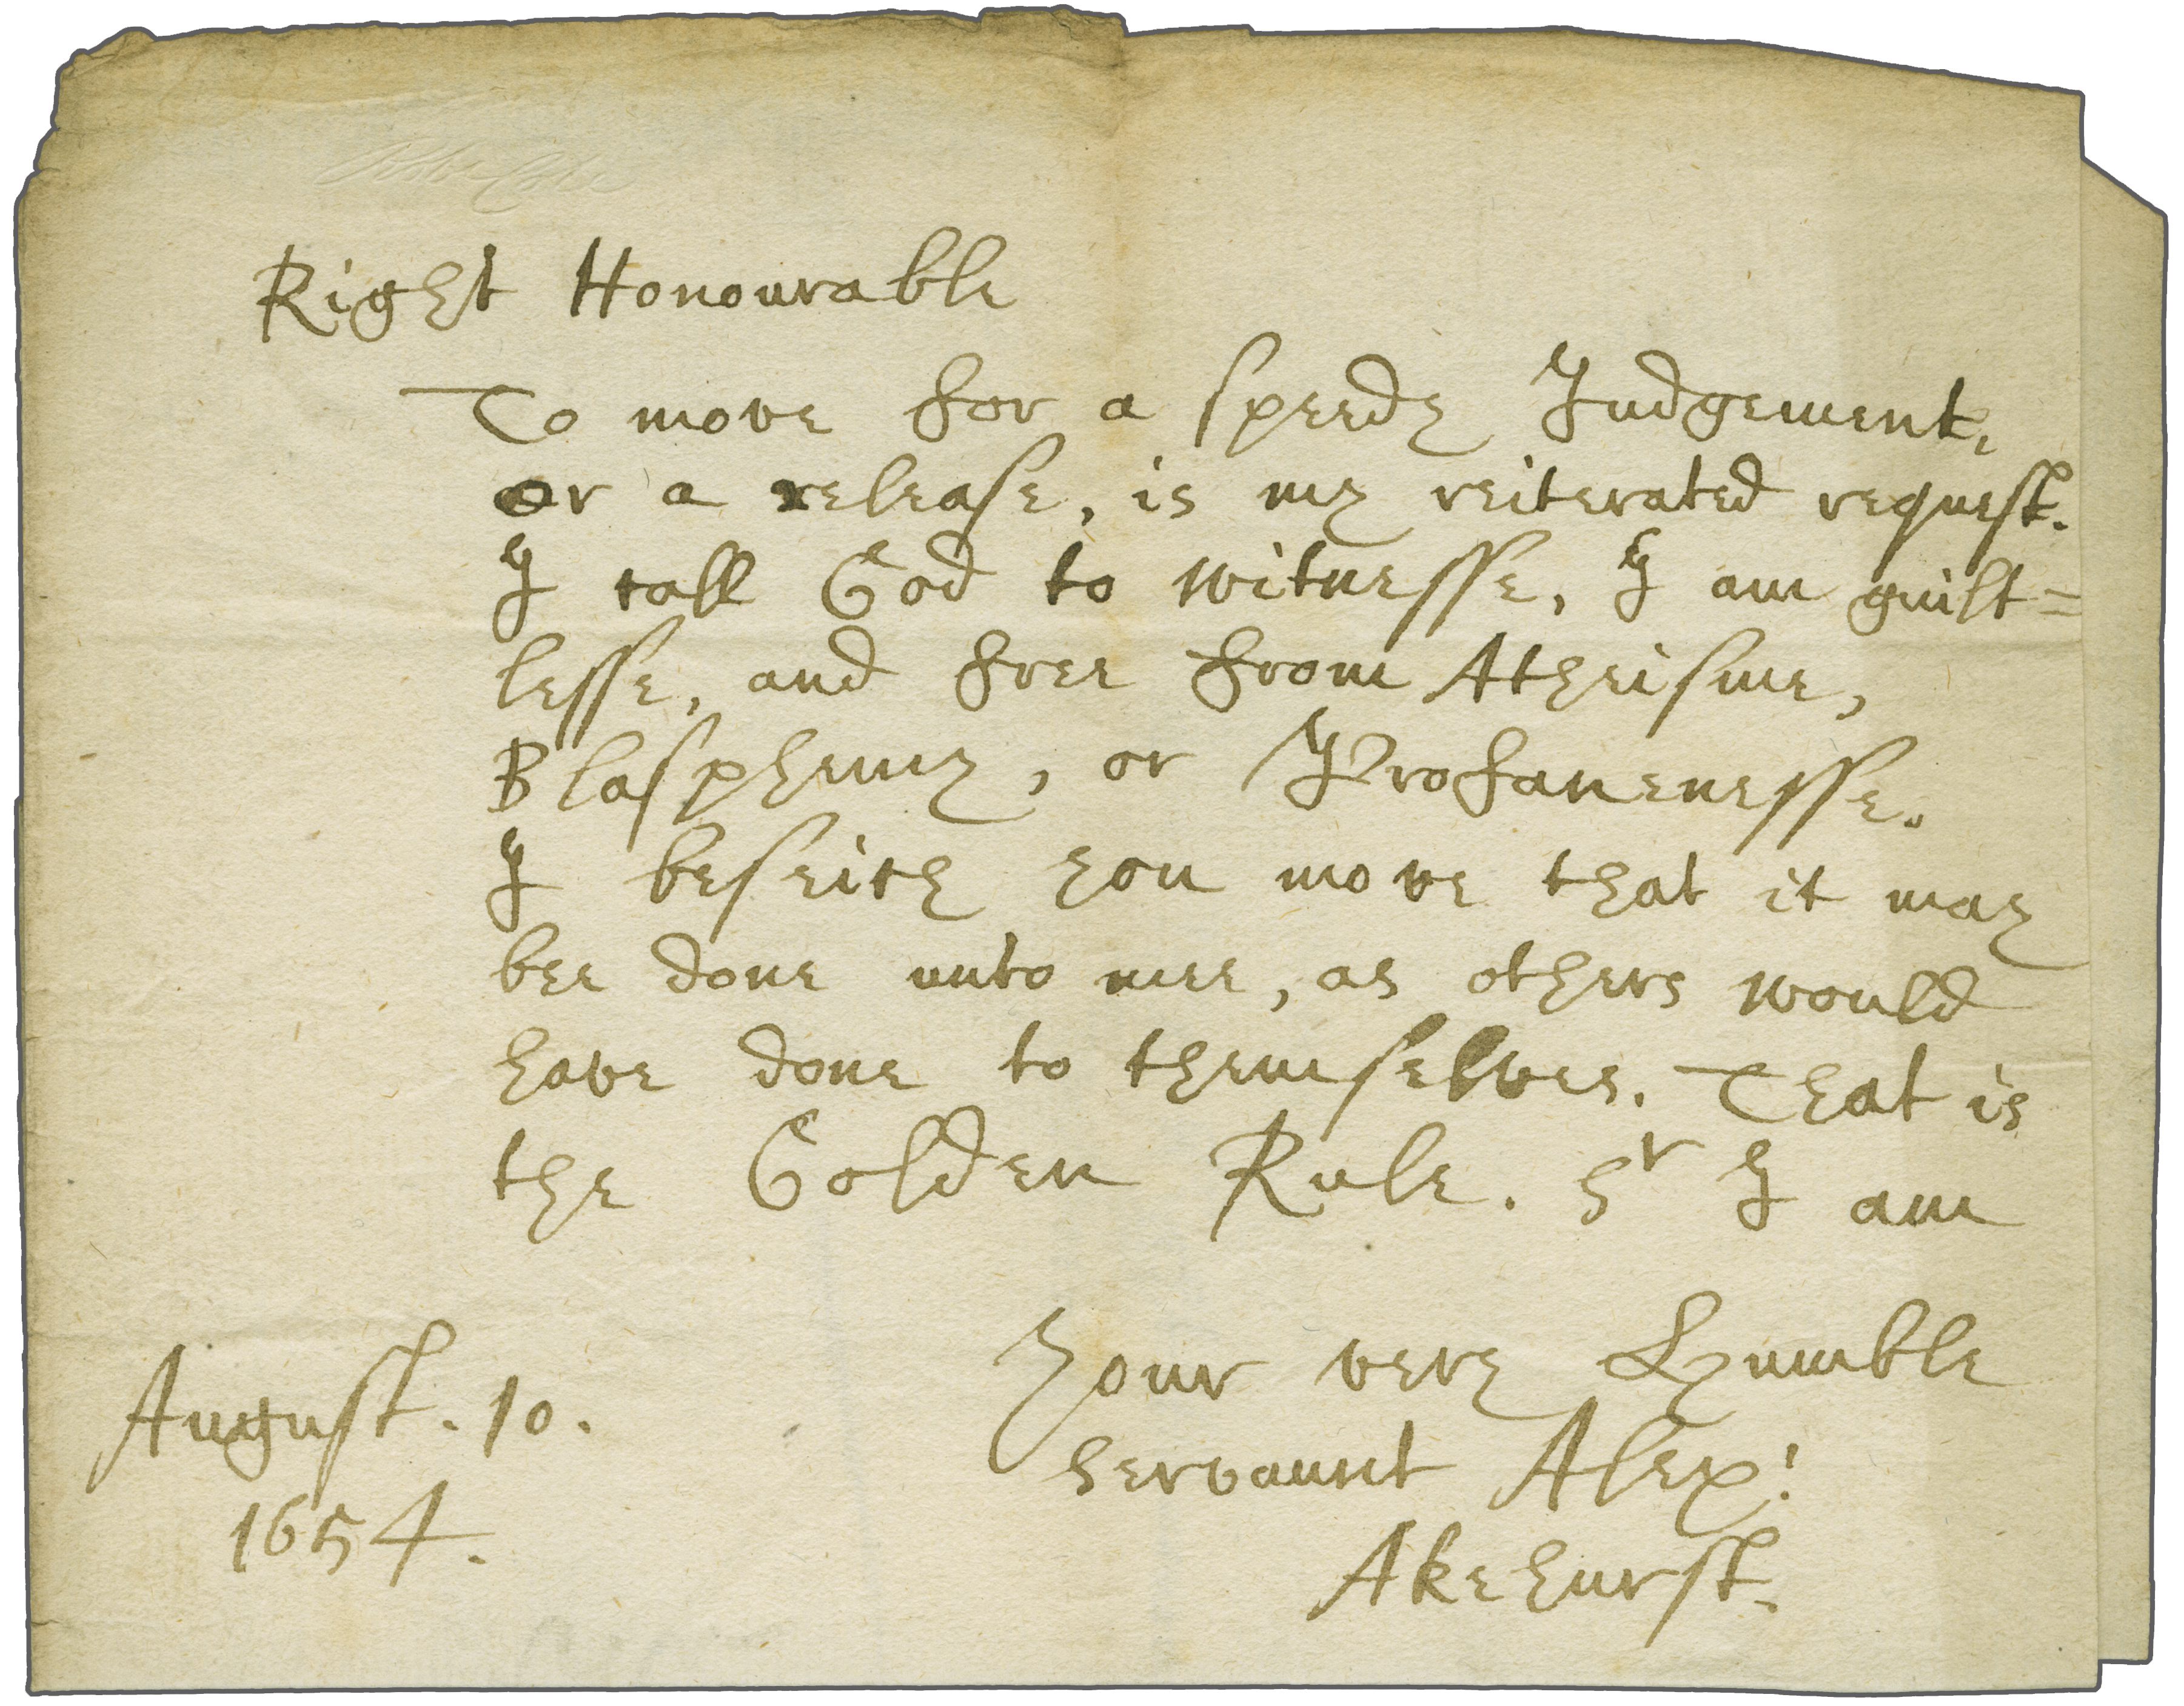 Right Honourable
To move for a speedy Judgement,
or a release, is my reiterated request.
I call God to witnesse, I am guilt=
lesse, and free from Atheisme,
Blasphemy, or Profanenesse.
I beseich you move that it may
bee done unto mee, as others would
have done to themselves. That is
the Golden Rule. Sr I am
Your very Humble
servaunt Alex:
Akehurst.
August. 10.
1654.